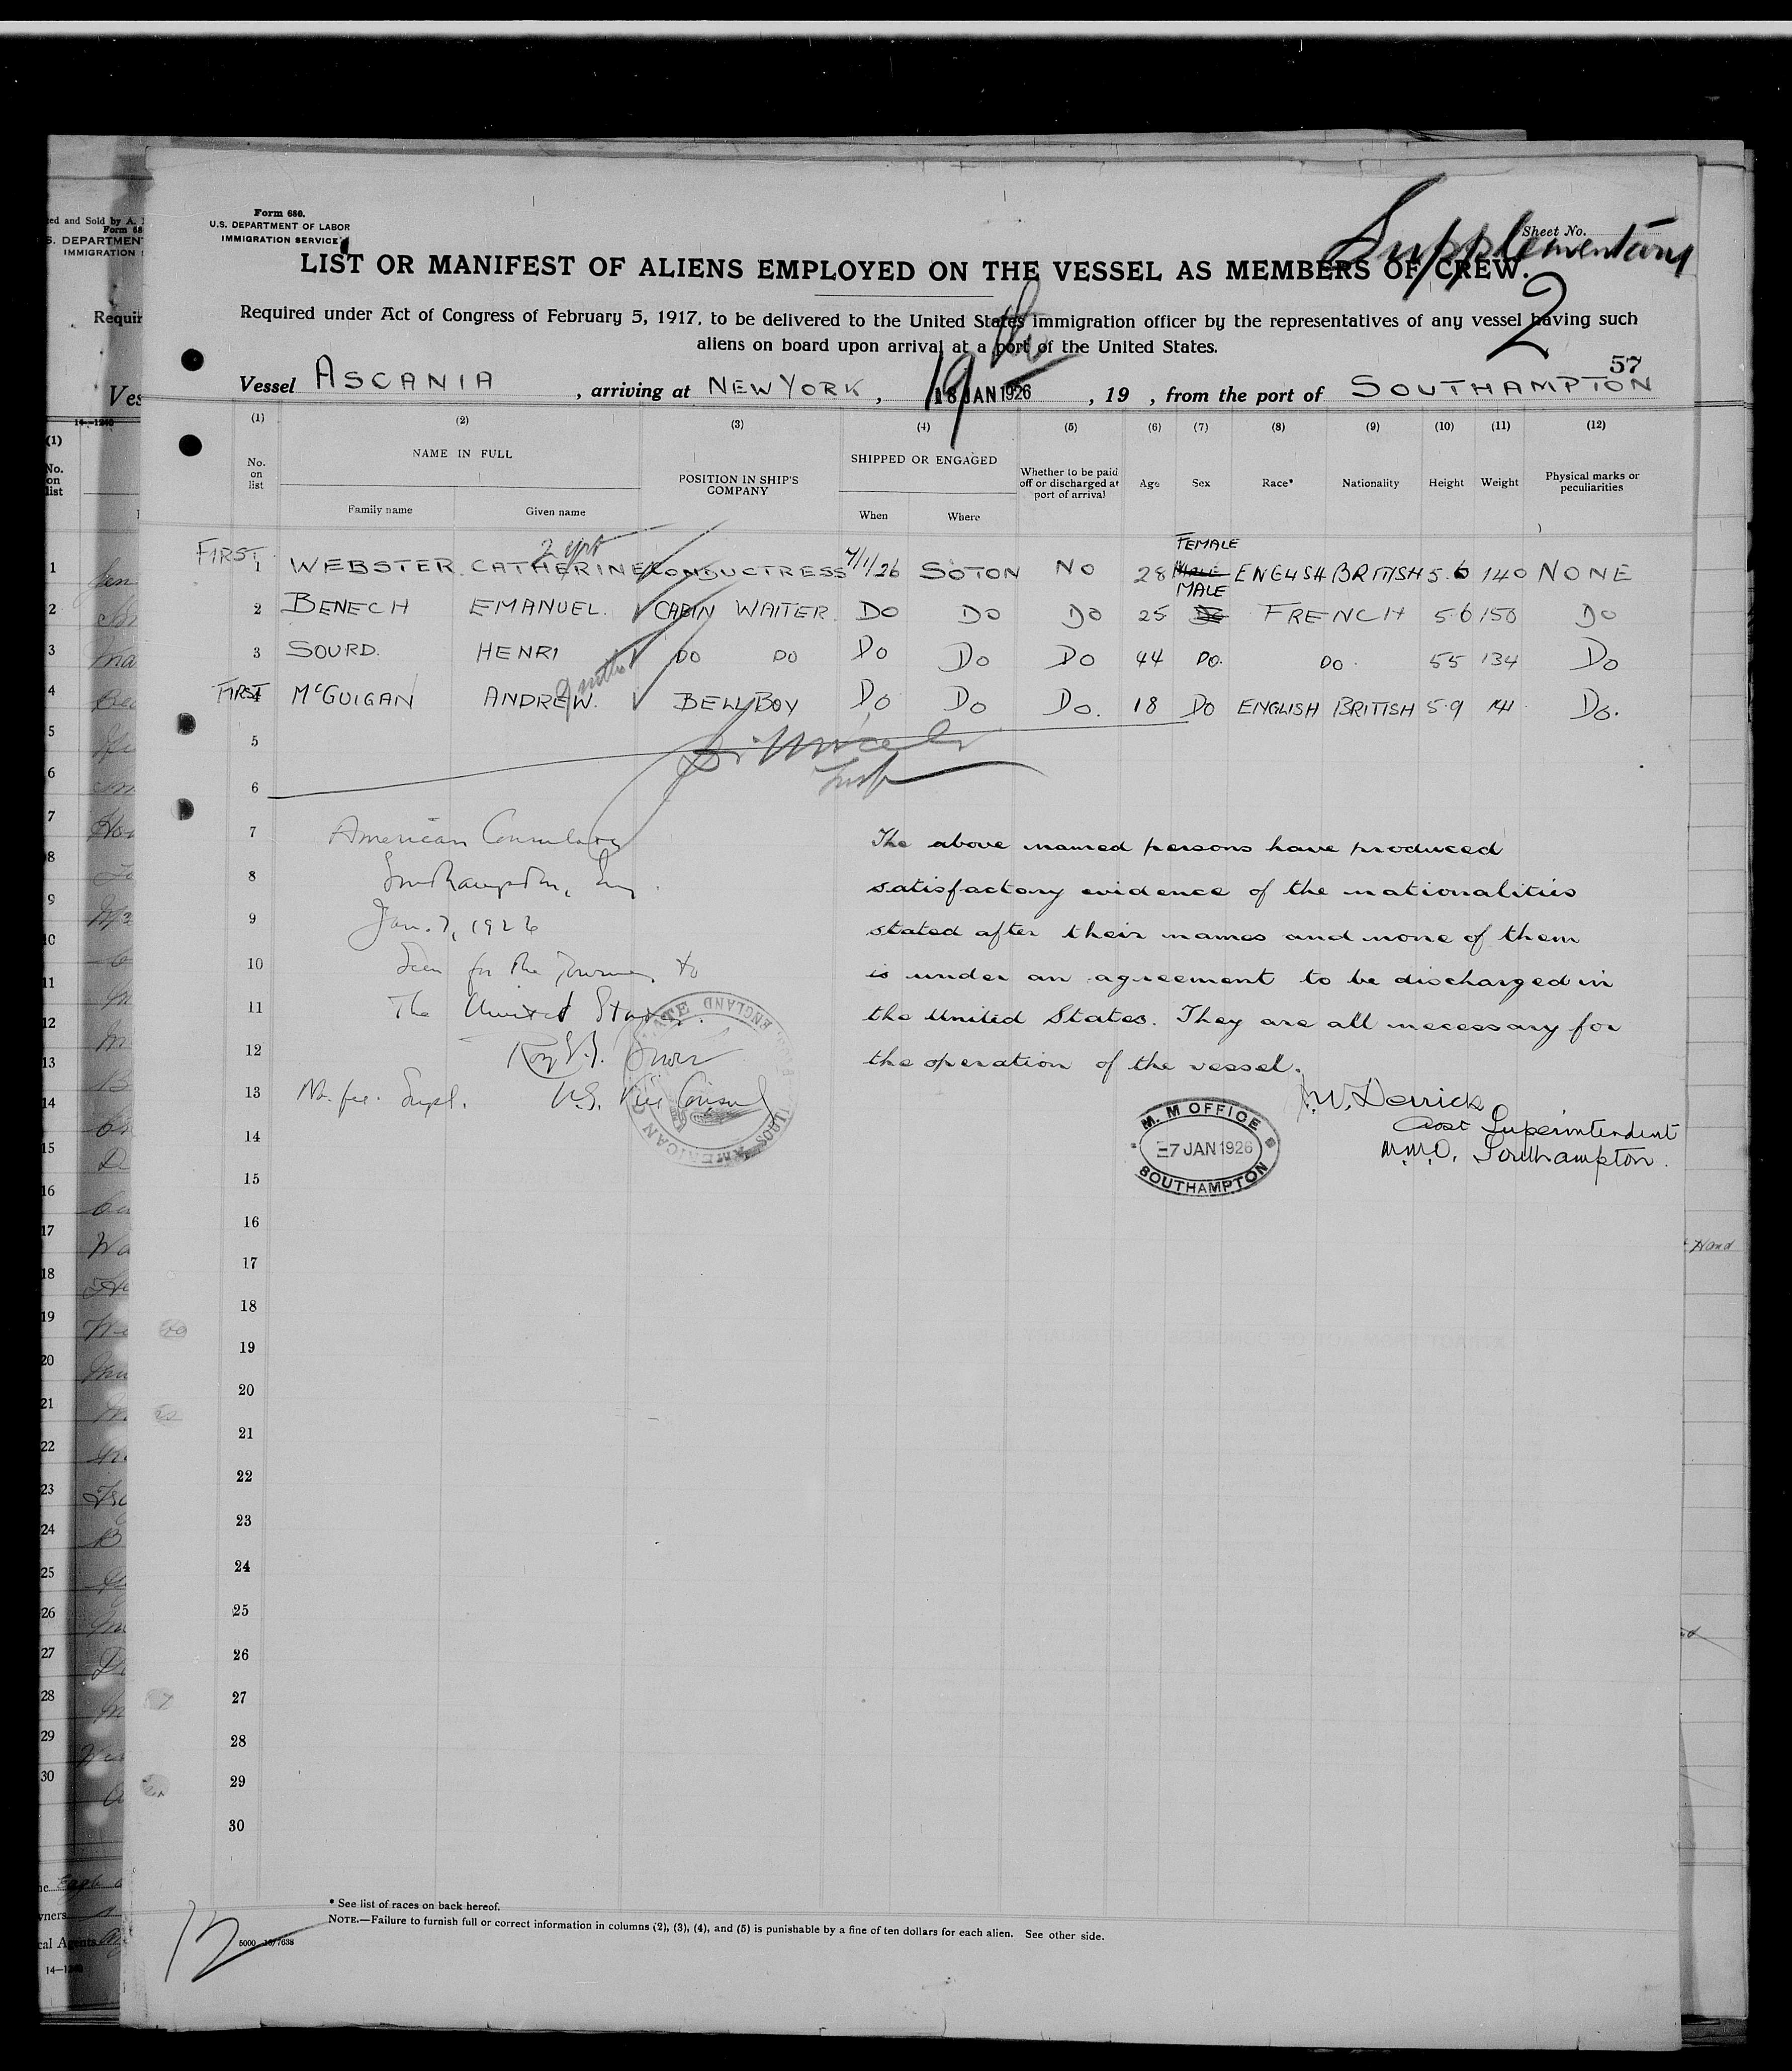 Form 680.
U.S. DEPARTMENT OF LABOR
IMMIGRATION SERVICE
Sheet No.
Supplementary
2
LIST OR MANIFEST OF ALIENS EMPLOYED ON THE VESSEL AS MEMBERS OF CREW.
Required under Act of Congress of February 5, 1917, to be delivered to the United States immigration officer by the representatives of any vessel having such
aliens on board upon arrival at a port of the United States.
57
Vessel ASCANIA, arriving at NEW YORK, 19th 18 JAN 1926, 19 , from the port of SOUTHAMPTON
(1) (2) (3) (4) (5) (6) (7) (8) (9) (10) (11) (12)
No. on list NAME IN FULL POSITION IN SHIP'S COMPANY SHIPPED OR ENGAGED Whether to be paid off or discharged at port of arrival Age Sex Race* Nationality Height Weight Physical marks or peculiarities
Family name Given name When Where
FEMALE
FIRST 1 WEBSTER. CATHERINE CONDUCTRESS 7/1/26 SOTON NO 28 MALE ENGLISH BRITISH 5.6 140 NONE
MALE
2 BENECH EMANUEL. CABIN WAITER. DO DO DO 25 DO FRENCH 5.6 150 DO
3 SOURD. HENRI DO DO DO DO DO 44 DO. DO. 55 134 DO
FIRST 4 McGUIGAN ANDREW. BELL BOY DO DO DO. 18 DO ENGLISH BRITISH 5.9 141 DO.
5
6
7
8
9
10
11
12
13
14
15
16
17
18
19
20
21
22
23
24
25
26
27
28
29
30
American Consulate
Southampton, Eng.
Jan. 7, 1926
Seen for the journey to
The United States.
No fee. Supl. U.S. Vice Consul
The above named persons have produced
satisfactory evidence of the nationalities
stated after their names and none of them
is under an agreement to be discharged in
the United States. They are all necessary for
the operation of the vessel.
W. Derrick
Superintendent
M.M.O. Southampton.
M. M OFFICE
7 JAN 1926
SOUTHAMPTON
* See list of races on back hereof.
NOTE.—Failure to furnish full or correct information in columns (2), (3), (4), and (5) is punishable by a fine of ten dollars for each alien. See other side.
12